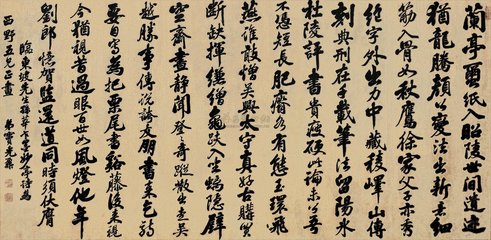 蘭亭繭紙入昭陵世間遺迹
猶龍騰顏公變法出新意細
筋入骨如秋鷹徐家父子亦秀
絕字外出力中藏稜嶧山傳
刻典刑在千載筆法留陽冰
杜陵評書貴瘦硬此論未公吾
不憑短長肥瘠各有態玉環飛
燕誰敢憎吳興太守真好古購買
斷缺揮縑繒龜趺入坐螭隱壁
空齋晝靜聞登登奇蹤散出走吳
越勝事傳說誇友朋書來乞詩
要自寫為把栗尾書谿藤後來視
今猶視昔過眼百世如風燈他年
劉郎憶賀監還道同時須伏膺
臨東坡先生孫莘老求妙亭詩為
西野五兄正
弟竇光鼐